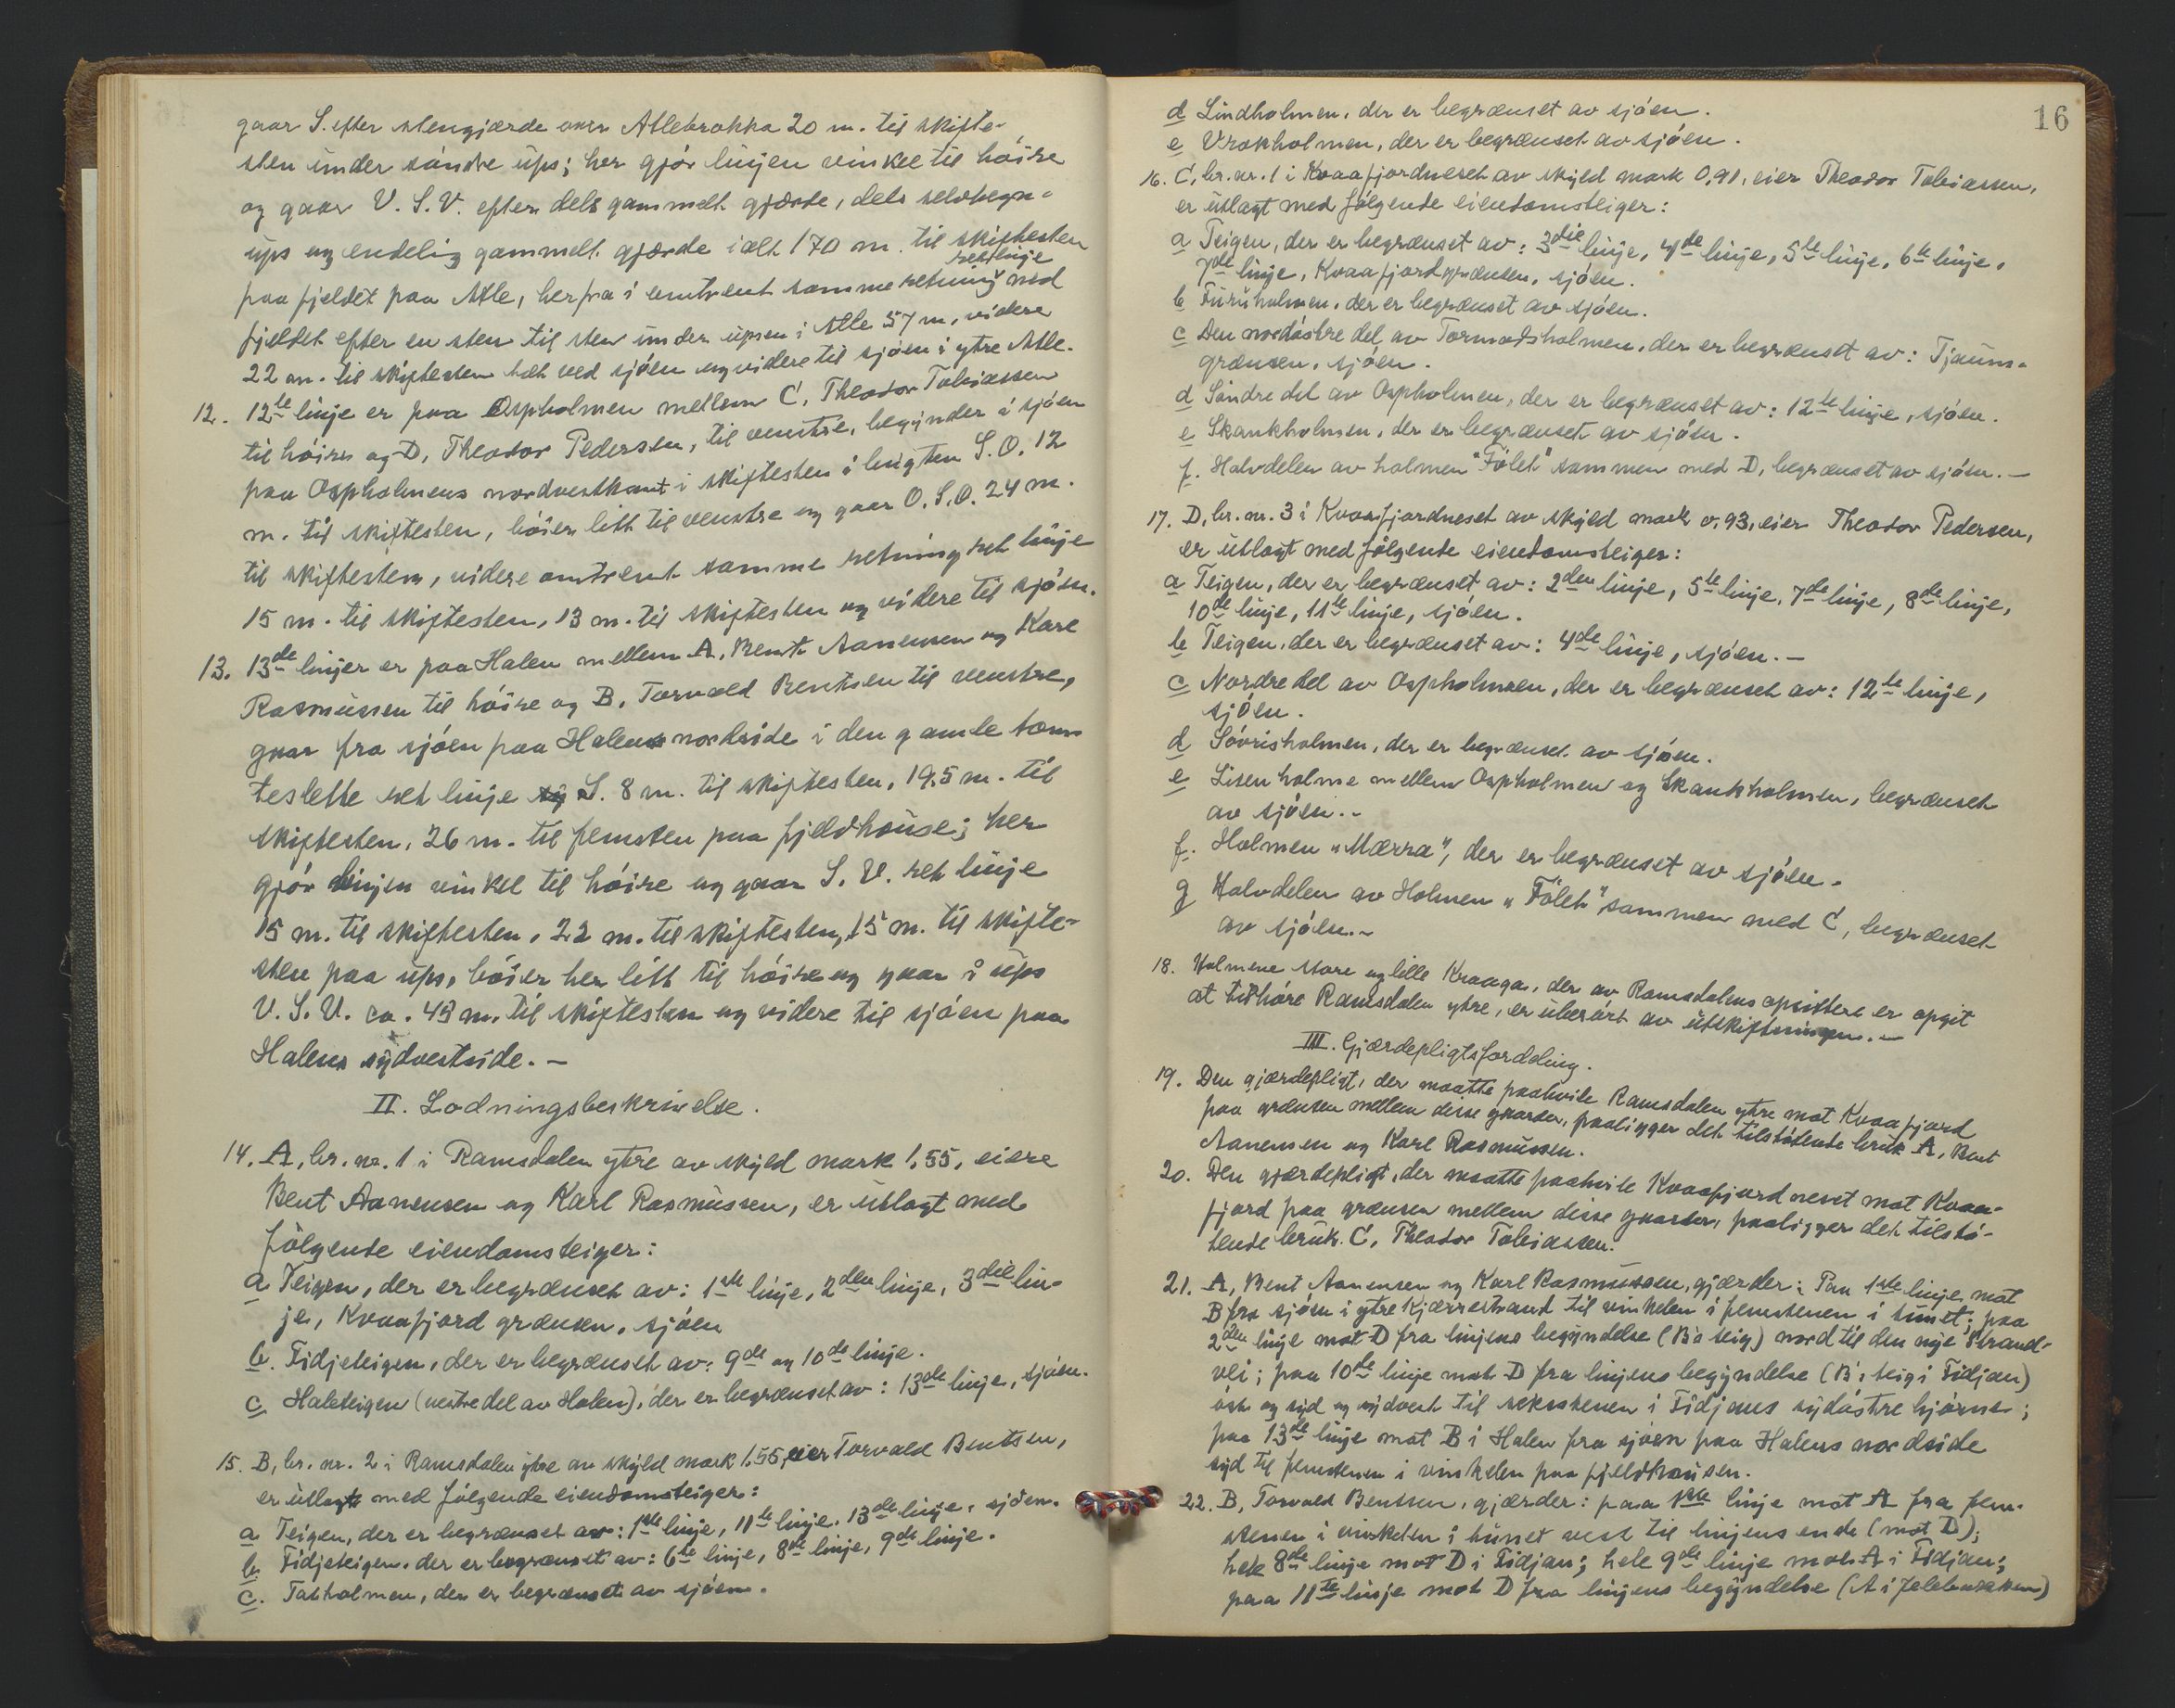 gaar S. efter stengjærde over Atlebrokka 20 m. til skifte-
sten under söndre ups; her gjör linjen vinkel til höire
og gaar V. S. V. efter dels gammelt gjærde, dels
ups og endelig gammelt gjærde ialt 170 m. til skiftesten
ret linje
paa fjeldet paa Atle, herfra i omtrent samme retning ned
fjeldet efter en sten til sten under upsen i Atle 57 m, videre
22 m. til skiftesten tæt ved sjöen og videre til sjöen i ytre Atle.
12. 12te linje er paa Ospholmen mellem C, Theodor Tobiassen
til höire og D, Theodor Pedersen, til venstre, begynder i sjöen
paa Ospholmens nordvestkant i skiftesten i bugten S. O. 12
m. til skiftesten, böier litt til venstre og gaar O. S. O. 24 m.
til skiftesten, videre omtrent samme retning ret linje
15 m. til skiftesten, 13 m. til skiftesten og videre til sjöen.
13. 13de linjer er paa Halen mellem A, Bent Aanensen og Karl
Rasmussen til höire og B, Torvald Bentsen til venstre,
gaar fra sjöen paa Halens nordside i den gamle tom-
teslette ret linje S. 8 m. til skiftesten, 19,5 m. til
skiftesten, 26 m. til femsten paa fjeldhause; her
gjör linjen vinkel til höire og gaar S. V. ret linje
15 m. til skiftesten, 22 m. til skiftesten, 15 m. til skifte-
sten paa ups, böier her litt til höire og gaar i ups
V. S. V. ca. 43 m. til skiftesten og videre til sjöen paa
Halens sydvestside. —
II. Lodningsbeskrivelse.
14. A, br. nr. 1 i Ramsdalen ytre av skyld mark 1,55, eiere
Bent Aanensen og Karl Rasmussen, er utlagt med
fölgende eiendomsteiger:
a Teigen, der er begrænset av: 1ste linje, 2den linje, 3die lin-
je, Kvaafjord grænsen, sjöen
b. Fidjeteigen, der er begrænset av: 9de og 10de linje.
c Haleteigen (vestre del av Halen), der er begrænset av: 13de linje, sjöen.
15. B, br. nr. 2 i Ramsdalen ytre av skyld mark 1,55, eier Torvald Bentsen,
er utlagt med fölgende eiendomsteiger:
a Teigen, der er begrænset av: 1ste linje, 11te linje, 13de linje, sjöen.
b Fidjeteigen, der er begrænset av: 6te linje, 8de linje, 9de linje.
c. Tatholmen, der er begrænset av sjöen.
16
d Lindholmen, der er begrænset av sjöen.
e Vrakholmen, der er begrænset av sjöen.
16. C, br. nr. 1 i Kvaafjordneset av skyld mark 0,91, eier Theodor Tobiassen,
er utlagt med fölgende eiendomsteiger:
a Teigen, der er begrænset av: 3die linje, 4de linje, 5te linje, 6te linje,
7de linje, Kvaafjordgrænsen, sjöen.
b Furuholmen, der er begrænset av sjöen.
c Den nordöstre del av Tormodsholmen, der er begrænset av: Tjaums-
grænsen, sjöen.
d Söndre del av Ospholmen, der er begrænset av: 12te linje, sjöen.
e Skankholmen, der er begrænset av sjöen.
f. Halvdelen av holmen "Fölet" sammen med D, begrænset av sjöen. —
17. D, br. nr. 3 i Kvaafjordneset av skyld mark 0,93, eier Theodor Pedersen,
er utlagt med fölgende eiendomsteiger:
a Teigen, der er begrænset av: 2den linje, 5te linje, 7de linje, 8de linje,
10de linje, 11te linje, sjöen.
b Teigen, der er begrænset av: 4de linje, sjöen. —
c Nordre del av Ospholmen, der er begrænset av: 12te linje,
sjöen.
d Sövrisholmen, der er begrænset av sjöen.
e Liten holme mellem Ospholmen og Skankholmen, begrænset
av sjöen. -
f. Holmen "Mærra", der er begrænset av sjöen.
g Halvdelen av Holmen "Fölet" sammen med C, begrænset
av sjöen. -
18. Holmene store og lille Kraaga, der av Ramsdalens opsittere er opgit
at tilhöre Ramsdalen ytre, er uberört av utskiftningen. —
III. Gjærdepligtsfordeling.
19. Den gjærdepligt, der maatte paahvile Ramsdalen ytre mot Kvaafjord
paa grænsen mellem disse gaarder, paaligger det tilstötende bruk A, Bent
Aanensen og Karl Rasmussen.
20. Den gjærdepligt, der maatte paahvile Kvaafjordneset mot Kvaa-
fjord paa grænsen mellem disse gaarder, paaligger det tilstö-
tende bruk C, Theodor Tobiassen.
21. A, Bent Aanensen og Karl Rasmussen, gjærder: Paa 1ste linje mot
B fra sjöen i ytre Kjærrestrand til vinkelen i femstenen i tunet; paa
2den linje mot D fra linjens begyndelse (B's teig) nord til den nye Strand-
vei; paa 10de linje mot D fra linjens begyndelse (B's teig i Fidjan)
öst og syd og sydvest til seksstenen i Fidjans sydöstre hjörne;
paa 13de linje mot B i Halen fra sjöen paa Halens nordside
syd til femstenen i vinkelen paa fjeldhausen.
22. B, Torvald Bentsen, gjærder: paa 1ste linje mot A fra fem-
stenen i vinkelen i tunet vest til linjens ende (mot D);
hele 8de linje mot D i Fidjan; hele 9de linje mot A i Fidjan;
paa 11te linje mot D fra linjens begyndelse (A i